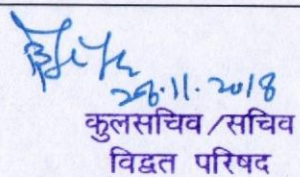 28.11.2018
कुलसचिव/सचिव
विद्वत परिषद